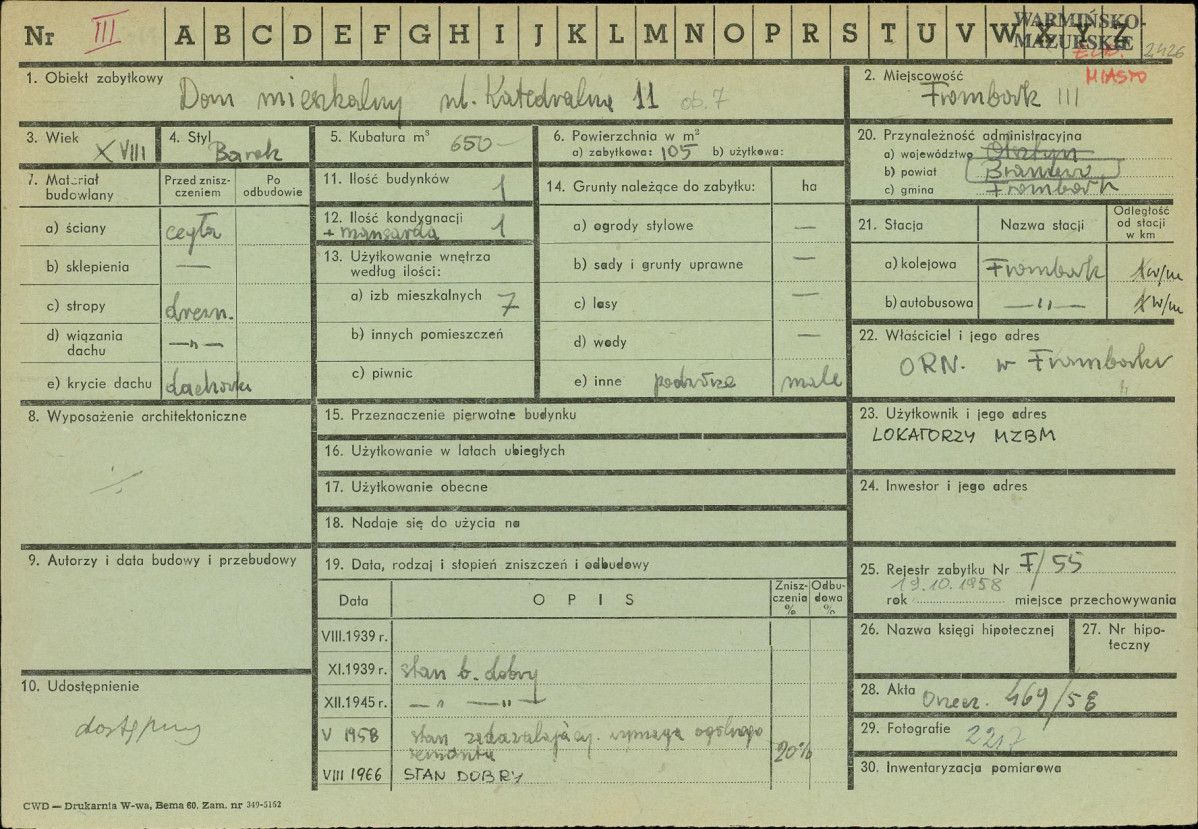 Nr III A B C D E F G H I J K L M N O P R S T U V W X Y Z
WARMIŃSKO-
MAZURSKIE
2426
MIASTO
1. Obiekt zabytkowy
Dom mieszkalny ul. Katedralna 11 ob. 7
2. Miejscowość
Frombork III
3. Wiek
XVIII
4. Styl
Barok
5. Kubatura m³ 650
6. Powierzchnia w m²
a) zabytkowa: 105 b) użytkowa:
20. Przynależność administracyjna
a) województwo Olsztyn
b) powiat Braniewo
c) gmina Frombork
7. Materiał budowlany
Przed znisz-
czeniem
Po
odbudowie
a) ściany cegła
b) sklepienia —
c) stropy drewn.
d) wiązania
dachu —"—
e) krycie dachu dachówka
11. Ilość budynków 1
12. Ilość kondygnacji
+ mansarda 1
13. Użytkowanie wnętrza
według ilości:
a) izb mieszkalnych 7
b) innych pomieszczeń
c) piwnic
14. Grunty należące do zabytku: ha
a) ogrody stylowe —
b) sady i grunty uprawne —
c) lasy —
d) wody —
e) inne podwórze małe
21. Stacja Nazwa stacji
Odległość
od stacji
w km
a) kolejowa Frombork w/m
b) autobusowa —"— w/m
22. Właściciel i jego adres
ORN. w Fromborku
8. Wyposażenie architektoniczne
15. Przeznaczenie pierwotne budynku
16. Użytkowanie w latach ubiegłych
17. Użytkowanie obecne
18. Nadaje się do użycia na
23. Użytkownik i jego adres
LOKATORZY MZBM
24. Inwestor i jego adres
9. Autorzy i data budowy i przebudowy
10. Udostępnienie
dostępny
19. Data, rodzaj i stopień zniszczeń i odbudowy
Data O P I S
Znisz-
czenia
%
Odbu-
dowa
%
VIII.1939 r.
XI.1939 r. stan b. dobry
XII.1945 r. —"— —"—
V 1958 stan zadawalający. wymaga ogólnego
remontu 20%
VIII 1966 STAN DOBRY
25. Rejestr zabytku Nr F/55
19.10.1958
rok miejsce przechowywania
26. Nazwa księgi hipotecznej
27. Nr hipo-
teczny
28. Akta Orzecz. 469/58
29. Fotografie 2217
30. Inwentaryzacja pomiarowa
CWD — Drukarnia W-wa, Bema 60. Zam. nr 349-5162